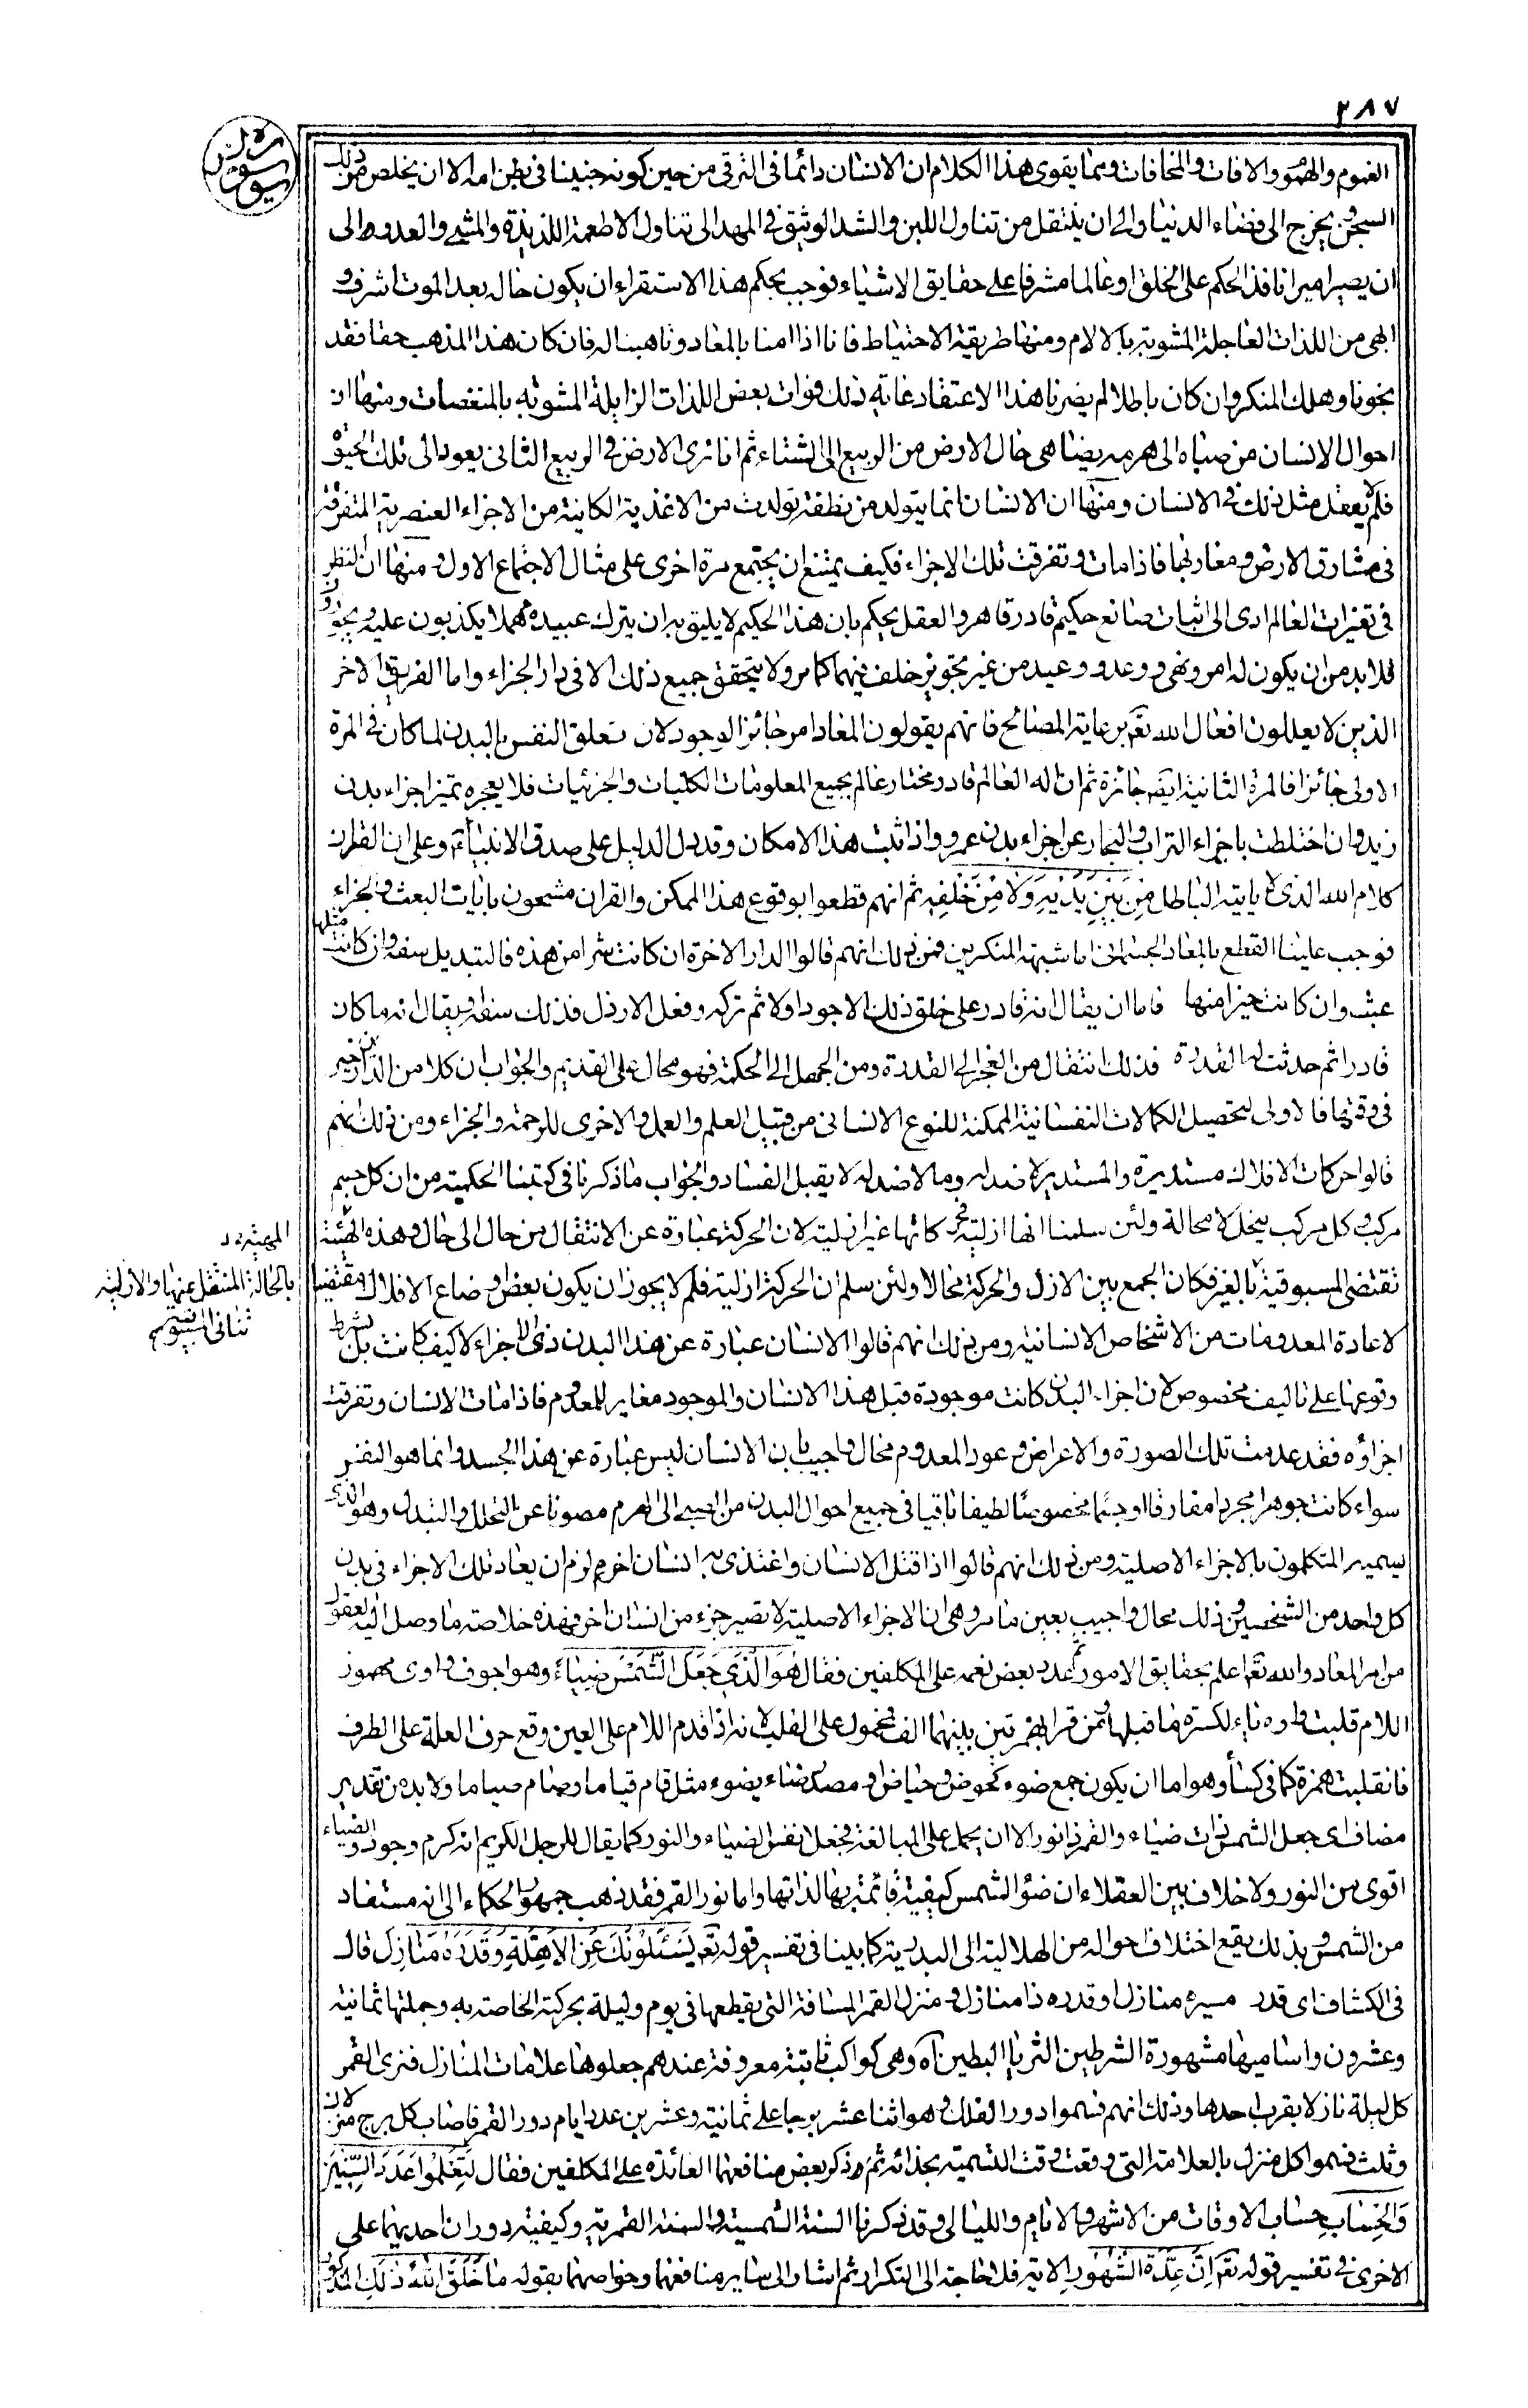 ٢٨٧
سورة يونس
الغموم والهموم والافات والمخافات ومما يقوى هذا الكلام ان الانسان دائما فى الترقى من حين كونه جنينا فى بطن امه الا ان يخلص من ذلك
السجن ويخرج الى فضاء الدنيا والى ان ينتقل من تناول اللبن والشد الوثيق فى المهد الى تناول الاطعمة اللذيذة والمشى والعدو الى
ان يصير اميرا نافذ الحكم على الخلق او عالما مشرفا على حقايق الاشياء فوجب بحكم هذا الاستقراء ان يكون حاله بعد الموت اشرف و
ابهى من اللذات العاجلة المشوبة بالالام ومنها طريقة الاحتياط فانا اذا امنا بالمعاد وتاهبنا له فان كان هذا المذهب حقا فقد
نجونا وهلك المنكر وان كان باطلا لم يضرنا هذا الاعتقاد غاية ذلك فوات بعض اللذات الزايلة المشوبة بالمنغصات ومنها ان
احوال الانسان من صباه الى هرمه يضاهى حال الارض من الربيع الى الشتاء ثم انا نرى الارض فى الربيع الثانى يعود الى تلك الحيوة
فلم لا يعقل مثل ذلك فى الانسان ومنها ان الانسان انما يتولد من نطفة تولدت من الاغذية الكائنة من الاجزاء العنصرية المتفرقة
فى مشارق الارض ومغاربها فاذا مات وتفرقت تلك الاجزاء فكيف يمتنع ان يجتمع مرة اخرى على مثال الاجتماع الاول ومنها ان النظر
فى تغيرات العالم ادى الى اثبات صانع حكيم قادر قاهر والعقل يحكم بان هذا الحكيم لا يليق به ان يترك عبيده مهملا يكذبون عليه ويجورون
فلا بد من ان يكون له امر ونهى ووعد ووعيد من غير تجويز خلف فيهما كما مر ولا يتحقق جميع ذلك الا فى دار الجزاء واما الفريق الاخر
الذين لا يعللون افعال الله تعم برعاية المصالح فانهم يقولون المعاد امر جائز الوجود لان تعلق النفس بالبدن لما كان فى المرة
الاولى جائزا فالمرة الثانية ايضه جائزة ثم ان اله العالم قادر مختار عالم بجميع المعلومات الكليات والجزئيات فلا يعجزه تميز اجزاء بدن
زيد وان اختلطت باجزاء التراب والبحار عن اجزاء بدن عمرو واذا ثبت هذا الامكان وقد دل الدليل على صدق الانبياء وعلى ان القران
كلام الله الذى لا ياتيه الباطل مِنْ بَيْنِ يَدَيْهِ وَلَا مِنْ خَلْفِهِ ثم انهم قطعوا بوقوع هذا الممكن والقران مشحون بايات البعث والجزاء
فوجب علينا القطع بالمعاد الجسمانى اما شبهة المنكرين فمن ذلك انهم قالوا الدار الاخرة ان كانت شرا من هذه فالتبديل سفه وان كانت مثلها
عبث وان كانت خيرا منها فاما ان يقال انه قادر على خلق ذلك الاجود اولا ثم تركه وفعل الارذل فذلك سفه او يقال انه ما كان
قادرا ثم حدثت له القدرة فذلك انتقال من العجز الى القدرة ومن الجهل الى الحكمة فهو محال على القديم والجواب ان كلا من الدارين خير
فى وقتها فالاولى لتحصيل الكمالات النفسانية الممكنة للنوع الانسانى من قبيل العلم والعمل والاخرى للرحمة والجزاء ومن ذلك انهم
قالوا حركات الافلاك مستديرة والمستدير لا ضد له وما لا ضد له لا يقبل الفساد والجواب ما ذكرنا فى كتبنا الحكمية من ان كل جسم
مركب وكل مركب ينحل لا محالة ولئن سلمنا انها ازلية فحركاتها غير ازلية لان الحركة عبارة عن الانتقال من حال الى حال وهذه الهيئة
تقتضى المسبوقية بالغير فكان الجمع بين الازل والحركة محالا ولئن سلم ان الحركة ازلية فلم لا يجوز ان يكون بعض اوضاع الافلاك مقتضيا
لاعادة المعدومات من الاشخاص الانسانية ومن ذلك انهم قالوا الانسان عبارة عن هذا البدن ذى الاجزاء لا كيف كانت بل بشرط
وقوعها على تاليف مخصوص لان اجزاء البدن كانت موجودة قبل هذا الانسان والموجود مغاير للمعدوم فاذا مات الانسان وتفرقت
اجزاؤه فقد عدمت تلك الصورة والاعراض وعود المعدوم محال واجيب بان الانسان ليس عبارة عن هذا الجسد وانما هو النفس
سواء كانت جوهرا مجردا مفارقا او جسما مخصوصا لطيفا باقيا فى جميع احوال البدن من الصبى الى الهرم مصونا عن التحلل والتبدل وهو الذى
يسميه المتكلمون بالاجزاء الاصلية ومن ذلك انهم قالوا اذا قتل الانسان واغتذى به انسان اخر لزم ان يعاد تلك الاجزاء فى بدن
كل واحد من الشخصين وذلك محال واجيب بعين ما مر وهى ان الاجزاء الاصلية لا تصير جزء من انسان اخر فهذه خلاصة ما وصل اليه العقول
من امر المعاد والله تعم اعلم بحقايق الامور ثم عدد بعض نعمه على المكلفين فقال هُوَ الَّذِي جَعَلَ الشَّمْسَ ضِيَاءً وهو اجوف واوى مهموز
اللام قلبت واوه ياء لكسرة ما قبلها ومن قرا بهمزتين بينهما الف فمحمول على القلب لانه اذا قدم اللام على العين وقع حرف العلة على الطرف
فانقلبت همزة كما فى كساء وهو اما ان يكون جمع ضوء كحوض وحياض او مصدر ضاء يضوء مثل قام قياما وصام صياما ولا بد من تقدير
مضاف اى جعل الشمس ذات ضياء والقمر ذا نور الا ان يحمل على المبالغة فجعلا نفس الضياء والنور كما يقال للرجل الكريم انه كرم وجود والضياء
اقوى من النور ولا خلاف بين العقلاء ان ضوء الشمس كيفية قائمة بها لذاتها واما نور القمر فقد ذهب جمهور الحكماء الى انه مستفاد
من الشمس وبذلك يقع اختلاف احواله من الهلالية الى البدرية كما بينا فى تفسير قوله تعم يَسْئَلُونَكَ عَنِ الْاَهِلَّةِ وَقَدَّرَهُ مَنَازِلَ قال
فى الكشاف اى قدر مسيره منازل او قدره ذا منازل ومنزل القمر المسافة التى يقطعها فى يوم وليلة بحركته الخاصة به وجملتها ثمانية
وعشرون واساميها مشهورة الشرطين الثريا البطين اه وهى كواكب ثابتة معروفة عندهم جعلوها علامات المنازل فنرى القمر
كل ليلة نازلا بقرب احدها وذلك انهم قسموا دور الفلك وهو اثنا عشر برجا على ثمانية وعشرين عدد ايام دور القمر فاصاب كل برج منزلان
وثلث فسموا كل منزل بالعلامة التى وقعت وقت التسمية بحذائه ثم ذكر بعض منافعها العائدة على المكلفين فقال لِتَعْلَمُوا عَدَدَ السِّنِينَ
وَالْحِسَابَ حساب الاوقات من الاشهر والايام والليالى وقد ذكرنا السنة الشمسية والسنة القمرية وكيفية دوران احديهما على
الاخرى فى تفسير قوله تعم اِنَّ عِدَّةَ الشُّهُورِ الاية فلا حاجة الى التكرار ثم اشار الى ساير منافعهما وخواصهما بقوله مَا خَلَقَ اللهُ ذَلِكَ المذكور
بالحالة المنتقل عنها والازلية